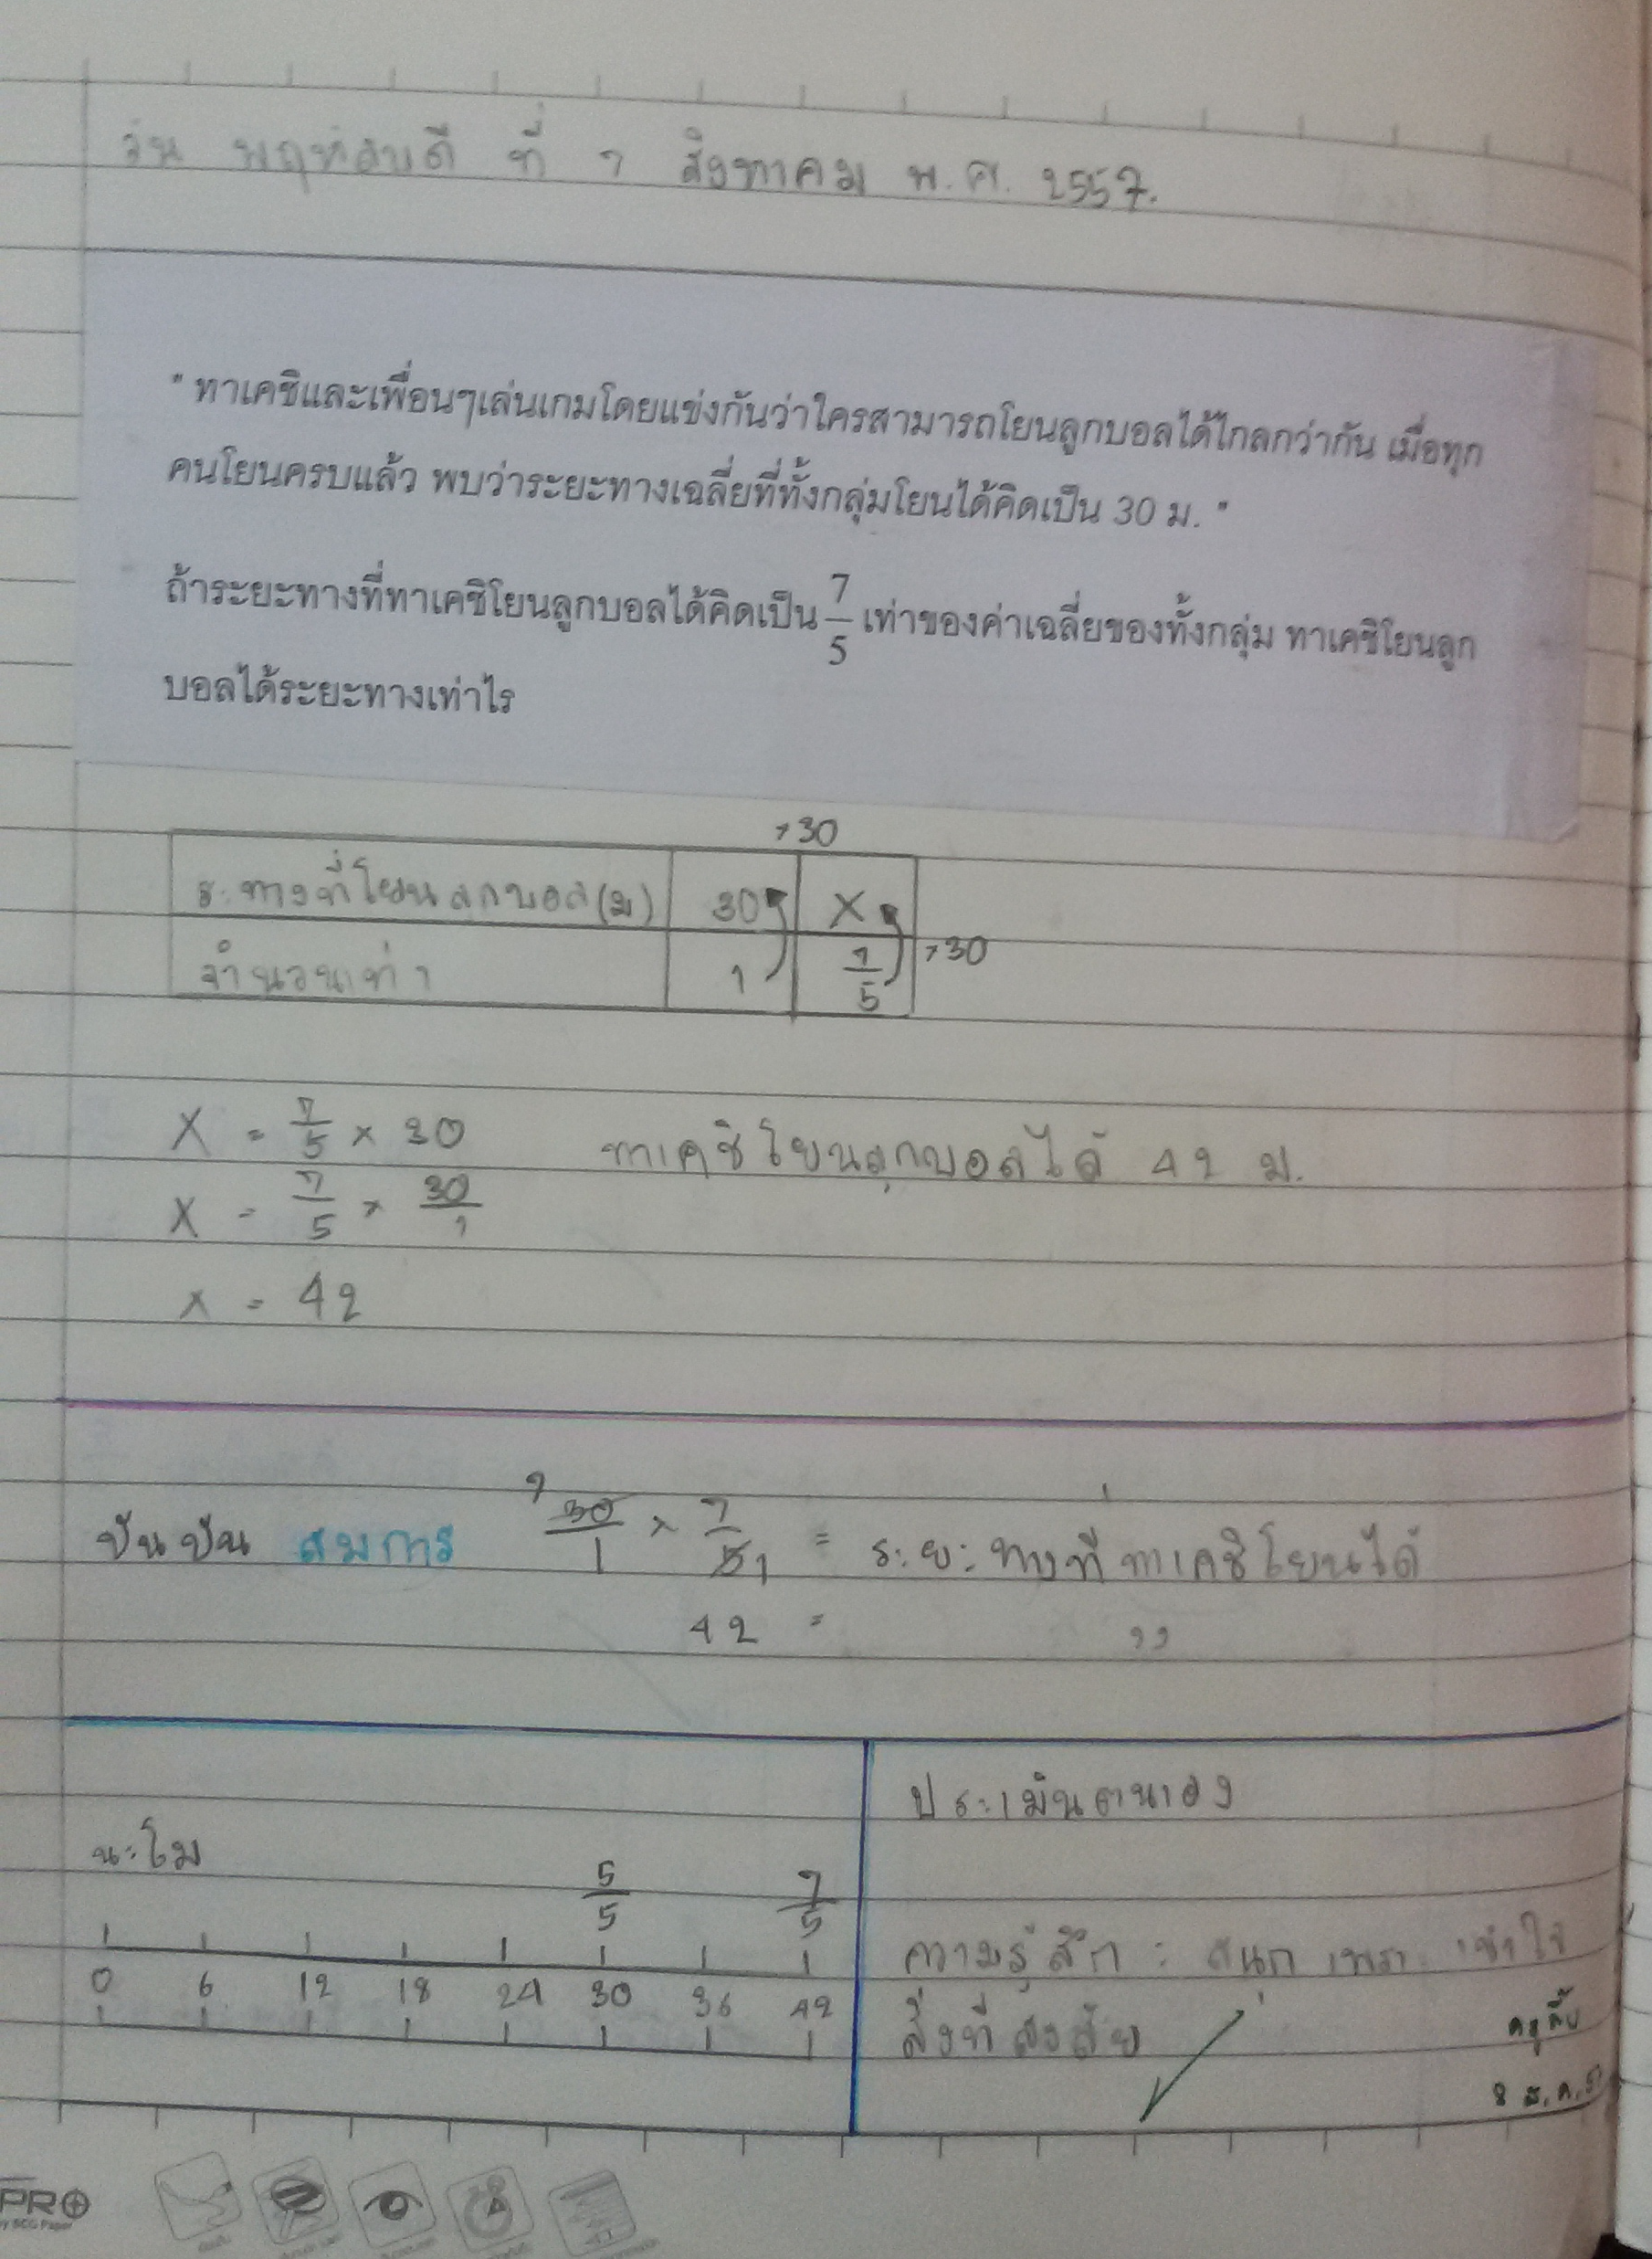 วัน พฤหัสบดี ที่ 7 สิงหาคม พ.ศ. 2557.
" ทาเคชิและเพื่อนๆเล่นเกมโดยแข่งกันว่าใครสามารถโยนลูกบอลได้ไกลกว่ากัน เมื่อทุก
คนโยนครบแล้ว พบว่าระยะทางเฉลี่ยที่ทั้งกลุ่มโยนได้คิดเป็น 30 ม. "
ถ้าระยะทางที่ทาเคชิโยนลูกบอลได้คิดเป็น 7/5 เท่าของค่าเฉลี่ยของทั้งกลุ่ม ทาเคชิโยนลูก
บอลได้ระยะทางเท่าไร
×30
ร:ทางที่โยนลกบอล(ม) 30 X
จำนวนเท่า 1 7/5 ×30
X = 7/5 × 30 ทาเคชิโยนลูกบอลได้ 42 ม.
X = 7/5 × 30/1
x = 42
ปันปัน สมการ 30/1 × 7/5 1 = ระยะทางที่ทาเคชิโยนได้
42 = ,,
ประเมินตนเอง
นะโม
5/5 7/5
0 6 12 18 24 30 36 42
ความรู้สึก : สนุก เพราะ เข้าใจ
สิ่งที่สงสัย
8 ส.ค.
PRO